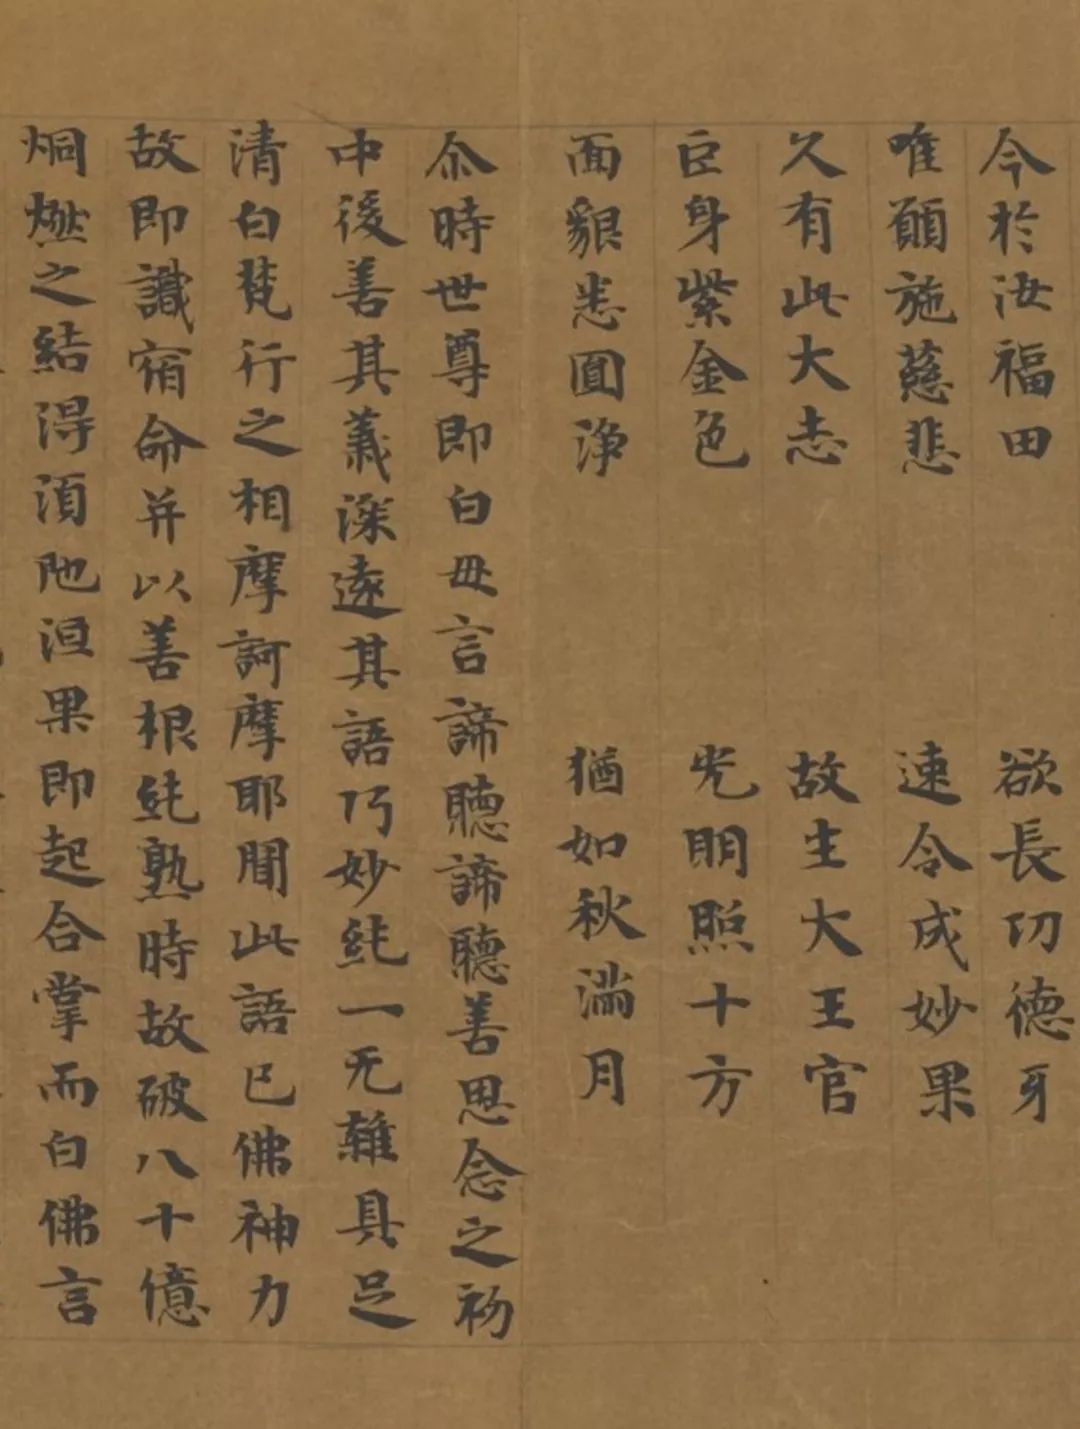 今於汝福田　欲長功德牙
唯願施慈悲　速令成妙果
久有此大志　故生大王宮
巨身紫金色　光明照十方
面貌悉圓淨　猶如秋滿月
尒時世尊即白母言諦聽諦聽善思念之初
中後善其義深遠其語巧妙純一无雜具足
清白梵行之相摩訶摩耶聞此語已佛神力
故即識宿命并以善根純熟時故破八十億
炯燃之結得須陀洹果即起合掌而白佛言